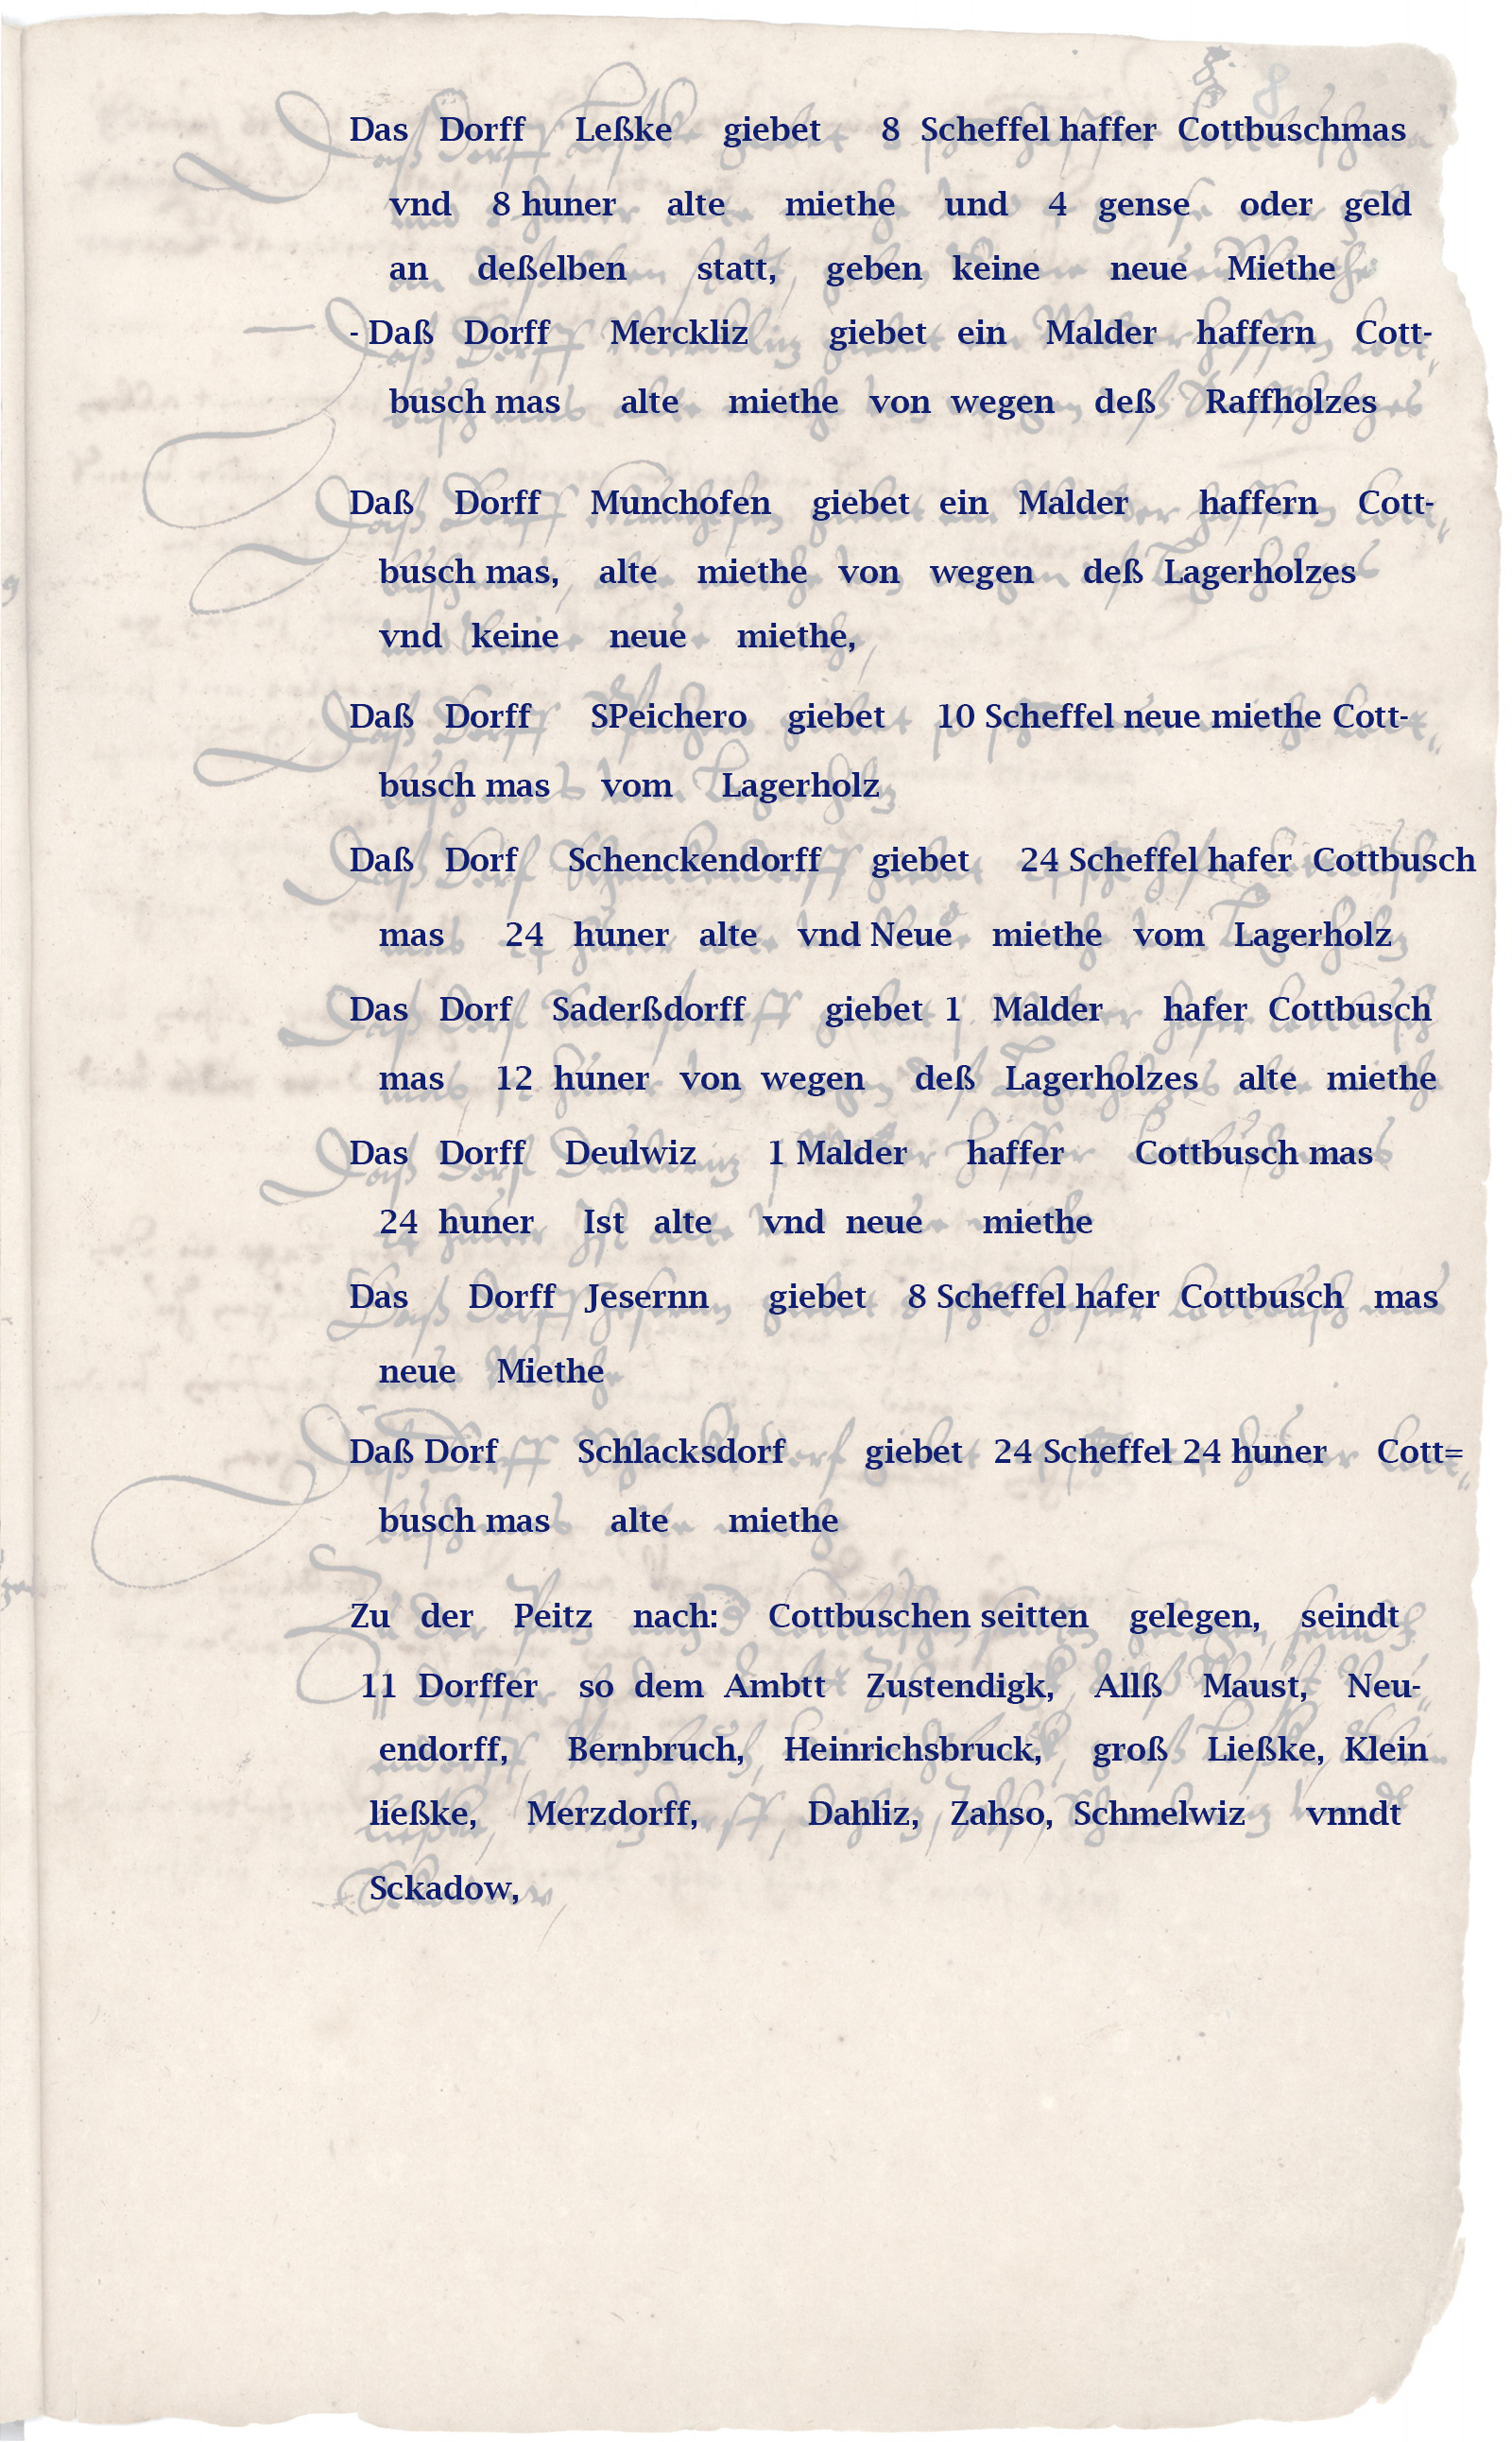 Das Dorff Leßke giebet 8 Scheffel haffer Cottbuschmas
vnd 8 huner alte miethe und 4 gense oder geld
an deßelben statt, geben keine neue Miethe
- Daß Dorff Merckliz giebet ein Malder haffern Cott-
busch mas alte miethe von wegen deß Raffholzes
Daß Dorff Munchofen giebet ein Malder haffern Cott-
busch mas, alte miethe von wegen deß Lagerholzes
vnd keine neue miethe,
Daß Dorff SPeichero giebet 10 Scheffel neue miethe Cott-
busch mas vom Lagerholz
Daß Dorf Schenckendorff giebet 24 Scheffel hafer Cottbusch
mas 24 huner alte vnd Neue miethe vom Lagerholz
Das Dorf Saderßdorff giebet 1 Malder hafer Cottbusch
mas 12 huner von wegen deß Lagerholzes alte miethe
Das Dorff Deulwiz 1 Malder haffer Cottbusch mas
24 huner Ist alte vnd neue miethe
Das Dorff Jesernn giebet 8 Scheffel hafer Cottbusch mas
neue Miethe
Daß Dorf Schlacksdorf giebet 24 Scheffel 24 huner Cott=
busch mas alte miethe
Zu der Peitz nach: Cottbuschen seitten gelegen, seindt
11 Dorffer so dem Ambtt Zustendigk, Allß Maust, Neu-
endorff, Bernbruch, Heinrichsbruck, groß Ließke, Klein
ließke, Merzdorff, Dahliz, Zahso, Schmelwiz vnndt
Sckadow,